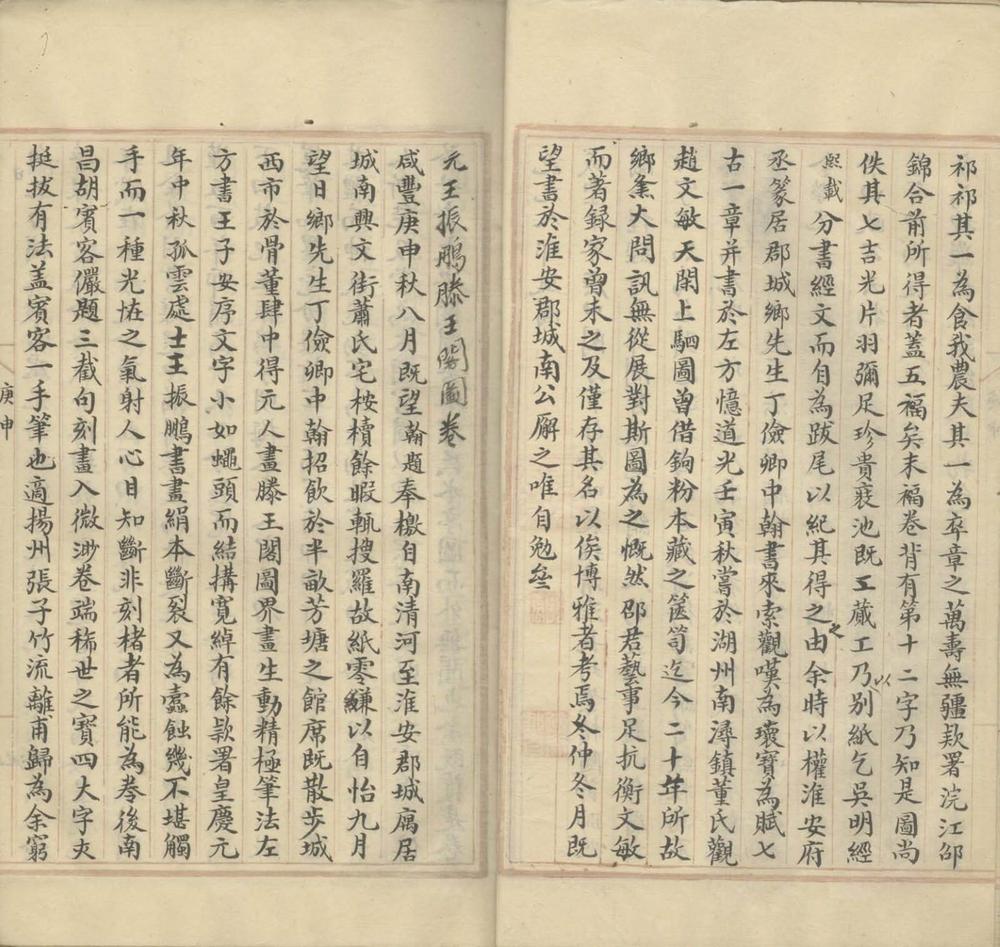 祁祁其一為食我農夫其一為卒章之萬壽無疆欵署浣江邵
錦合前所得者蓋五福矣末福卷背有第十二字乃知是圖尚
佚其七吉光片羽彌足珍貴裝池既工蕆工乃以別紙乞吳明經
熙載分書經文而自為跋尾以紀其得之之由余時以權淮安府
丞篆居郡城鄉先生丁儉卿中翰書來索觀嘆為瓌寶為賦七
古一章并書於左方憶道光壬寅秋嘗於湖州南潯鎮董氏觀
趙文敏天閑上駟圖曾借鉤粉本藏之篋笥迄今二十年所故
鄉夐大問訊無從展對斯圖為之慨然邵君藝事足抗衡文敏
而著録家曾未之及僅存其名以俟博雅者考焉冬仲冬月既
望書於淮安郡城南公廨之唯自勉㘴
元王振鵬滕王閣圖卷
咸豐庚申秋八月既望翰題奉檄自南清河至淮安郡城寓居
城南興文街蕭氏宅桉牘餘暇輒搜羅故紙零縑以自怡九月
望日鄉先生丁儉卿中翰招飲於半畝芳塘之館席既散步城
西市於骨董肆中得元人畫滕王閣圖界畫生動精極筆法左
方書王子安序文字小如蠅頭而結搆寬綽有餘欵署皇慶元
年中秋孤雲處士王振鵬書畫絹本斷裂又為蠹蝕幾不堪觸
手而一種光恠之氣射人心目知斷非刻楮者所能為卷後南
昌胡賓客儼題三截句刻畫入微渺卷端稀世之寶四大字夾
挺拔有法蓋賓客一手筆也適揚州張子竹流離甫歸為余窮
庚申